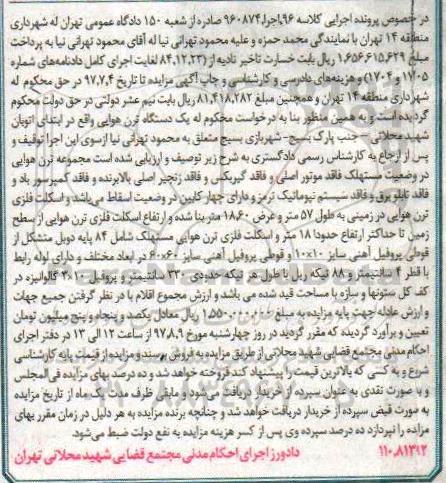 در خصوص پرونده اجرایی کلاسه ۹۶اجرا۹۶۰۸۷۴ صادره از شعبه ۱۵۰ دادگاه عمومی تهران له شهرداری
منطقه ۱۴ تهران با نمایندگی محمد حمزه و علیه محمود تهرانی نیا له آقای محمود تهرانی نیا به پرداخت
مبلغ ۱,۶۵۶,۶۱۵,۶۲۹ ریال بابت خسارت تاخیر تادیه از (۸۴,۱۲,۲۳ لغایت اجرای کامل دادنامه‌های شماره
۱۷۰۵ و ۱۷۰۴) و هزینه‌های دادرسی و کارشناسی و چاپ آگهی مزایده تا تاریخ ۹۷,۷,۴ در حق محکوم له
شهرداری منطقه ۱۴ تهران و همچنین مبلغ ۸۱,۴۱۸,۲۸۲ ریال بابت نیم عشر دولتی در حق دولت محکوم
گردیده است و به همین منظور بنا به درخواست محکوم له یک دستگاه ترن هوایی واقع در ابتدای اتوبان
شهید محلاتی- جنب پارک بسیج- شهربازی بسیج متعلق به محمود تهرانی نیا ازسوی این اجرا توقیف و
پس از ارجاع به کارشناس رسمی دادگستری به شرح زیر توصیف و ارزیابی شده است مجموعه ترن هوایی
در وضعیت مستهلک فاقد موتور اصلی و فاقد گیربکس و فاقد زنجیر اصلی بالابرنده و فاقد کمپرسور باد و
فاقد تابلو برق و فاقد سیستم نیوماتیک ترمز و دارای چهار کابین در وضعیت اسقاط می‌باشد و اسکلت فلزی
ترن هوایی در زمینی به طول ۵۷ متر و عرض ۱۸,۶۰ متر بنا شده و ارتفاع اسکلت فلزی ترن هوایی از سطح
زمین تا حداکثر ارتفاع حدودا ۱۸ متر و اسکلت فلزی ترن هوایی مستهلک شامل ۸۴ پایه دوبل متشکل از
قوطی پروفیل آهنی سایز ۱۰×۱۰ و قوطی پروفیل آهنی سایز ۶۰×۶۰ در ابعاد مختلف و دارای لوله رابط
با قطر ۴ سانتیمتر و ۸۸ تیکه ریل با طول هر تیکه حدودی ۳۳۰ سانتیمتر و پروفیل ۱۰×۳ گالوانیزه در
کف کل ستونها و سازه با مساحت قید شده می باشد و ارزش مجموع اقلام با در نظر گرفتن جمیع جهات
و ارزش عادله جهت پایه مزایده به مبلغ ۱,۵۵۰,۰۰۰,۰۰۰ ریال معادل یکصد و پنجاه و پنج میلیون تومان
تعیین و برآورد گردیده که مقرر گردید در روز چهارشنبه مورخ ۹۷,۸,۹ از ساعت ۱۲ الی ۱۳ در دفتر اجرای
احکام مدنی مجتمع قضایی شهید محلاتی از طریق مزایده به فروش برسد و مزایده از قیمت پایه کارشناسی
شروع و به کسی که بالاترین قیمت را پیشنهاد کند فروخته خواهد شد و ده درصد بهای مزایده فی المجلس
و با صورت نقدی به عنوان سپرده از خریدار دریافت می‌شود و مابقی ظرف مدت یک ماه از تاریخ مزایده
به صورت فیش سپرده از خریدار دریافت خواهد شد و چنانچه برنده مزایده به هر دلیل در زمان مقرر بهای
مزایده را نپردازد ده درصد سپرده وی پس از کسر هزینه مزایده به نفع دولت ضبط می‌شود.
۱۱۰,۸۱۳۹۲ دادورز اجرای احکام مدنی مجتمع قضایی شهید محلاتی تهران